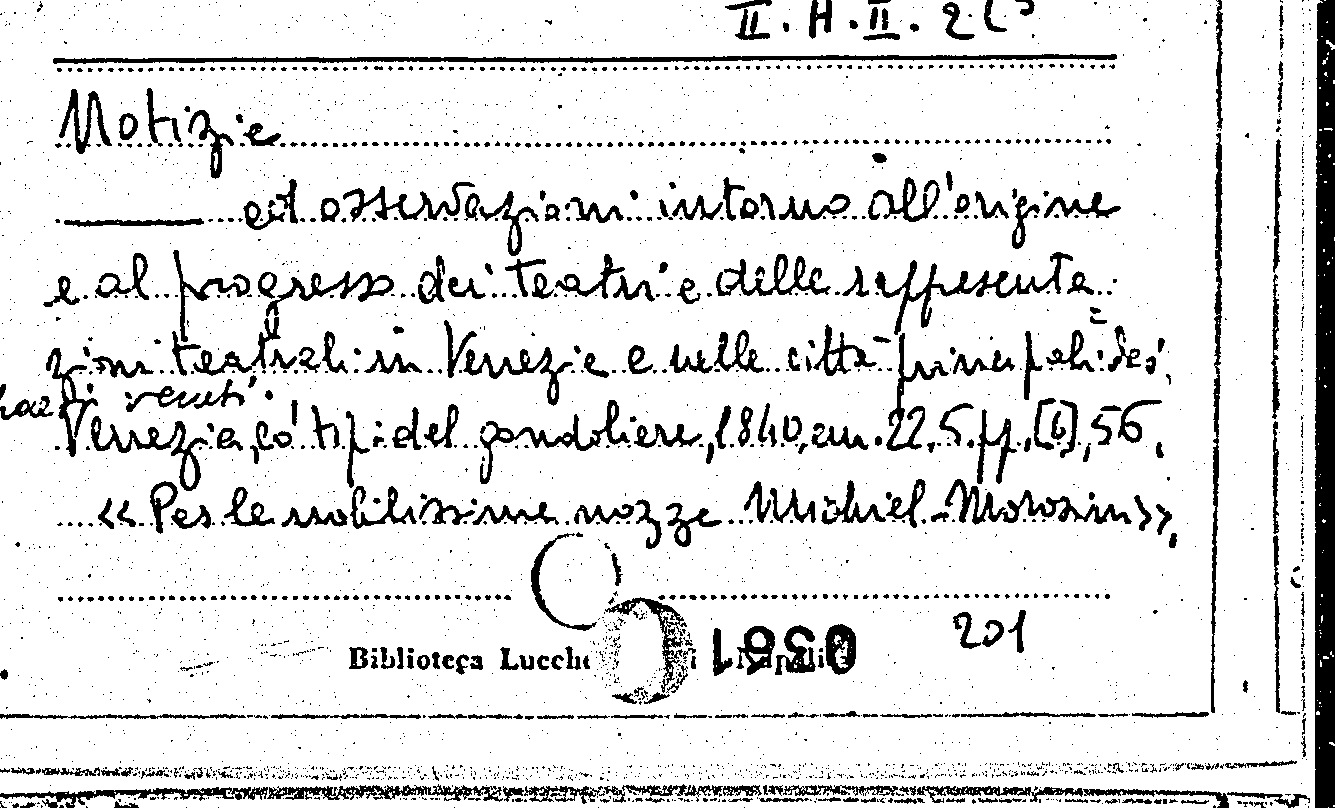 II. H. II. 2
Notizie
ed osservazioni intorno all'origine
e al progresso dei teatri e delle rappresenta=
zioni teatrali in Venezia e nelle città principali dei
veneti.
Venezia, co' tipi del gondoliere, 1840, cm. 22,5. pp. [6], 56.
«Per le nobilissime nozze Michiel-Morosini».
201
Biblioteca Lucche i Napoli
0361